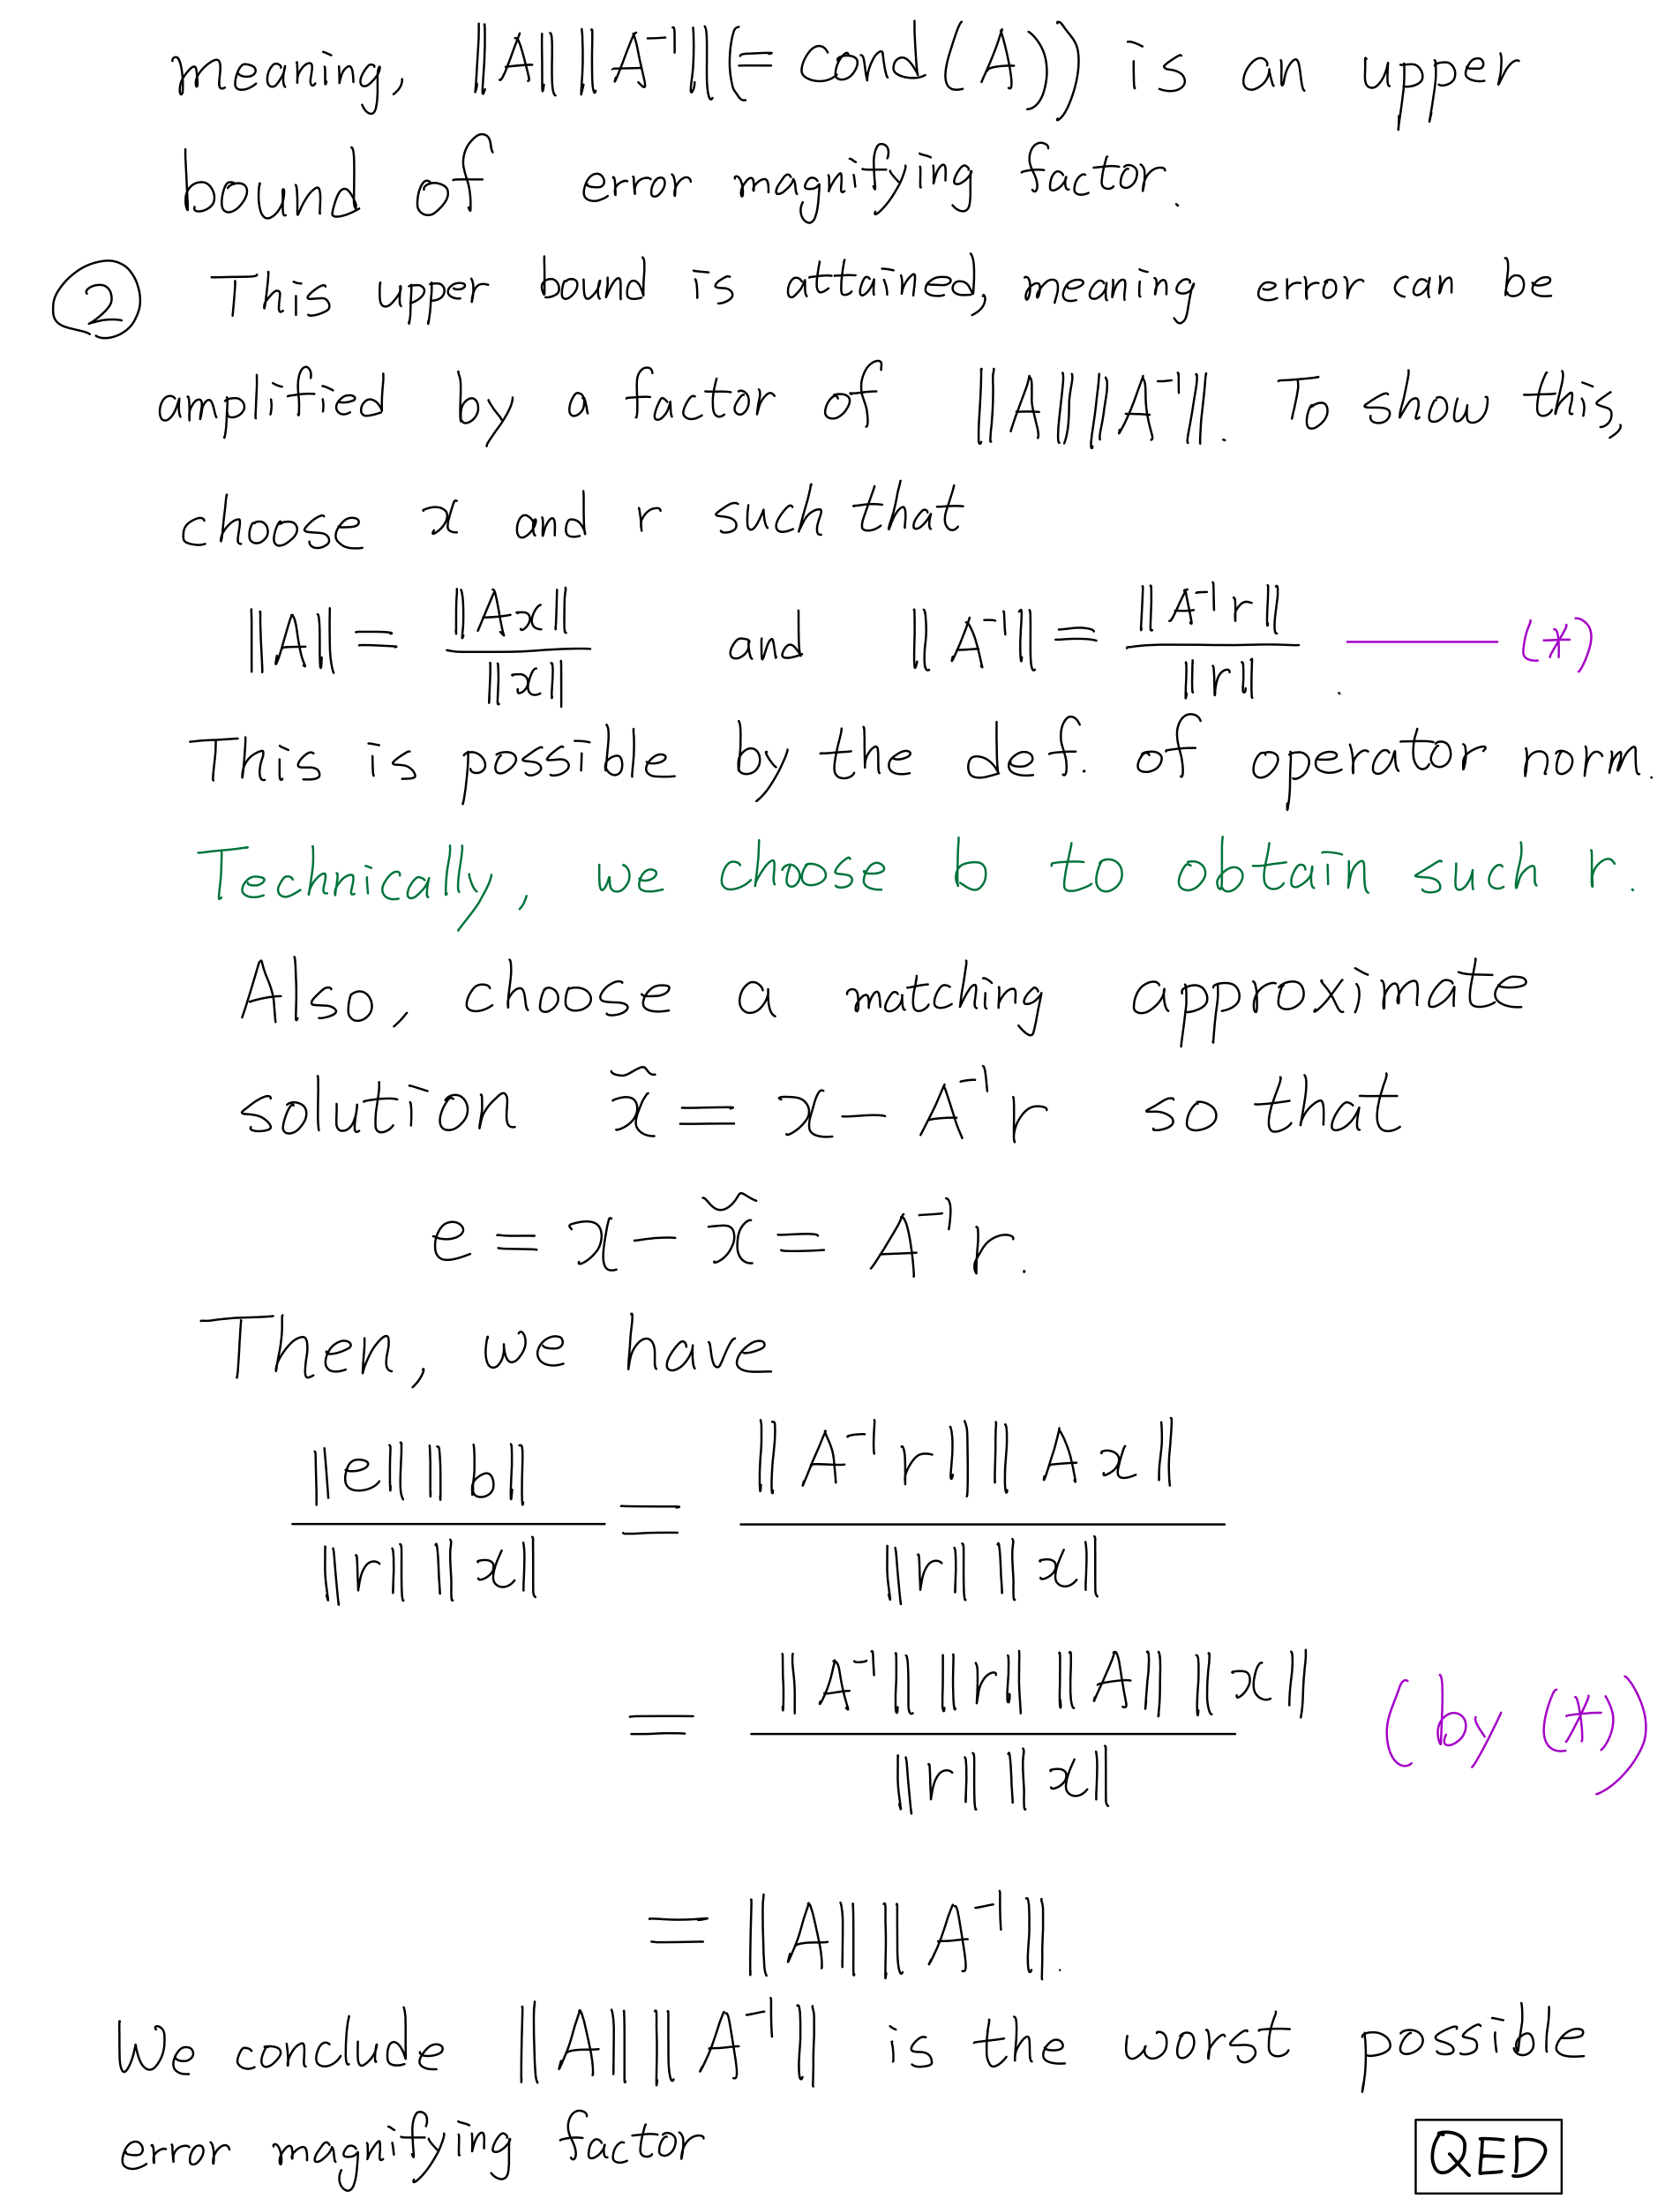 meaning, ||A|| ||A⁻¹|| (= cond(A)) is an upper
bound of error magnifying factor.
② This upper bound is attained, meaning error can be
amplified by a factor of ||A|| ||A⁻¹||. To show this,
choose x and r such that
||A|| = ||Ax|| / ||x|| and ||A⁻¹|| = ||A⁻¹r|| / ||r||. —— (*)
This is possible by the def. of operator norm.
Technically, we choose b to obtain such r.
Also, choose a matching approximate
solution x̃ = x - A⁻¹r so that
e = x - x̃ = A⁻¹r.
Then, we have
||e|| ||b|| / ||r|| ||x|| = ||A⁻¹r|| ||Ax|| / ||r|| ||x||
= ||A⁻¹|| ||r|| ||A|| ||x|| / ||r|| ||x|| (by (*))
= ||A|| ||A⁻¹||.
We conclude ||A|| ||A⁻¹|| is the worst possible
error magnifying factor
QED